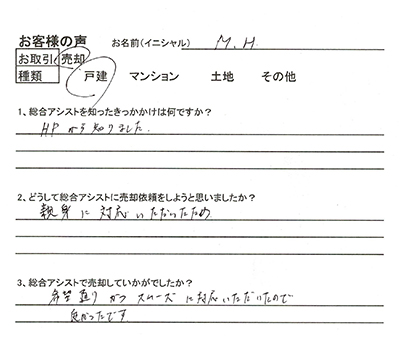 お客様の声 お名前(イニシャル) M.H
お取引 売却
種類 戸建 マンション 土地 その他
1、総合アシストを知ったきっかけは何ですか?
HPから知りました.
2、どうして総合アシストに売却依頼をしようと思いましたか?
親身に対応いただいたため
3、総合アシストで売却していかがでしたか?
希望通りかつスムーズに対応いただいたので
良かったです.